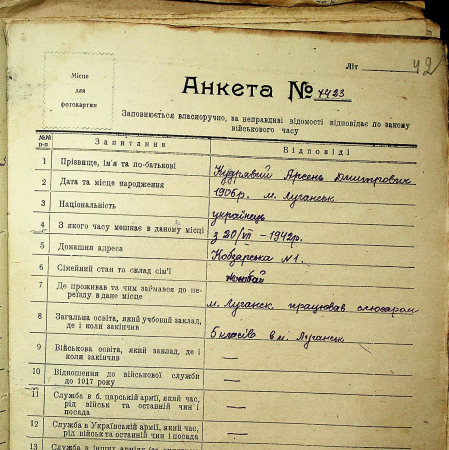 42
Літ
Місце
для
фотокартки
Анкета № 4423
Заповнюється власноручно, за неправдиві відомості відповідає по закому
військового часу
№№
п-п
Запитання
Відповіді
1 Прізвище, ім'я та по-батькові Кудрявий Арсень Дмитрович
2 Дата та місце народження 1906р. м. Луганськ
3 Національність українець
4 З якого часу мешкає в даному місці з 20/VII - 1942р.
5 Домашня адреса Кобзарська №1.
6 Сімейний стан та склад сім'ї
7 Де проживав та чим займався до пе-
реїзду в дане місце м. Луганск працював слюсарем
8 Загальна освіта, який учбовий заклад,
де і коли закінчив 5 класів в м. Луганск
9 Військова освіта, який заклад, де і
коли закінчив —
10 Відношення до військової служби
до 1917 року —
11 Служба в б. царській армії, який час,
рід військ та останній чин і
посада —
12 Служба в Українській армії, який час,
рід військ та останній чин і посада —
13 Служба в інших арміях